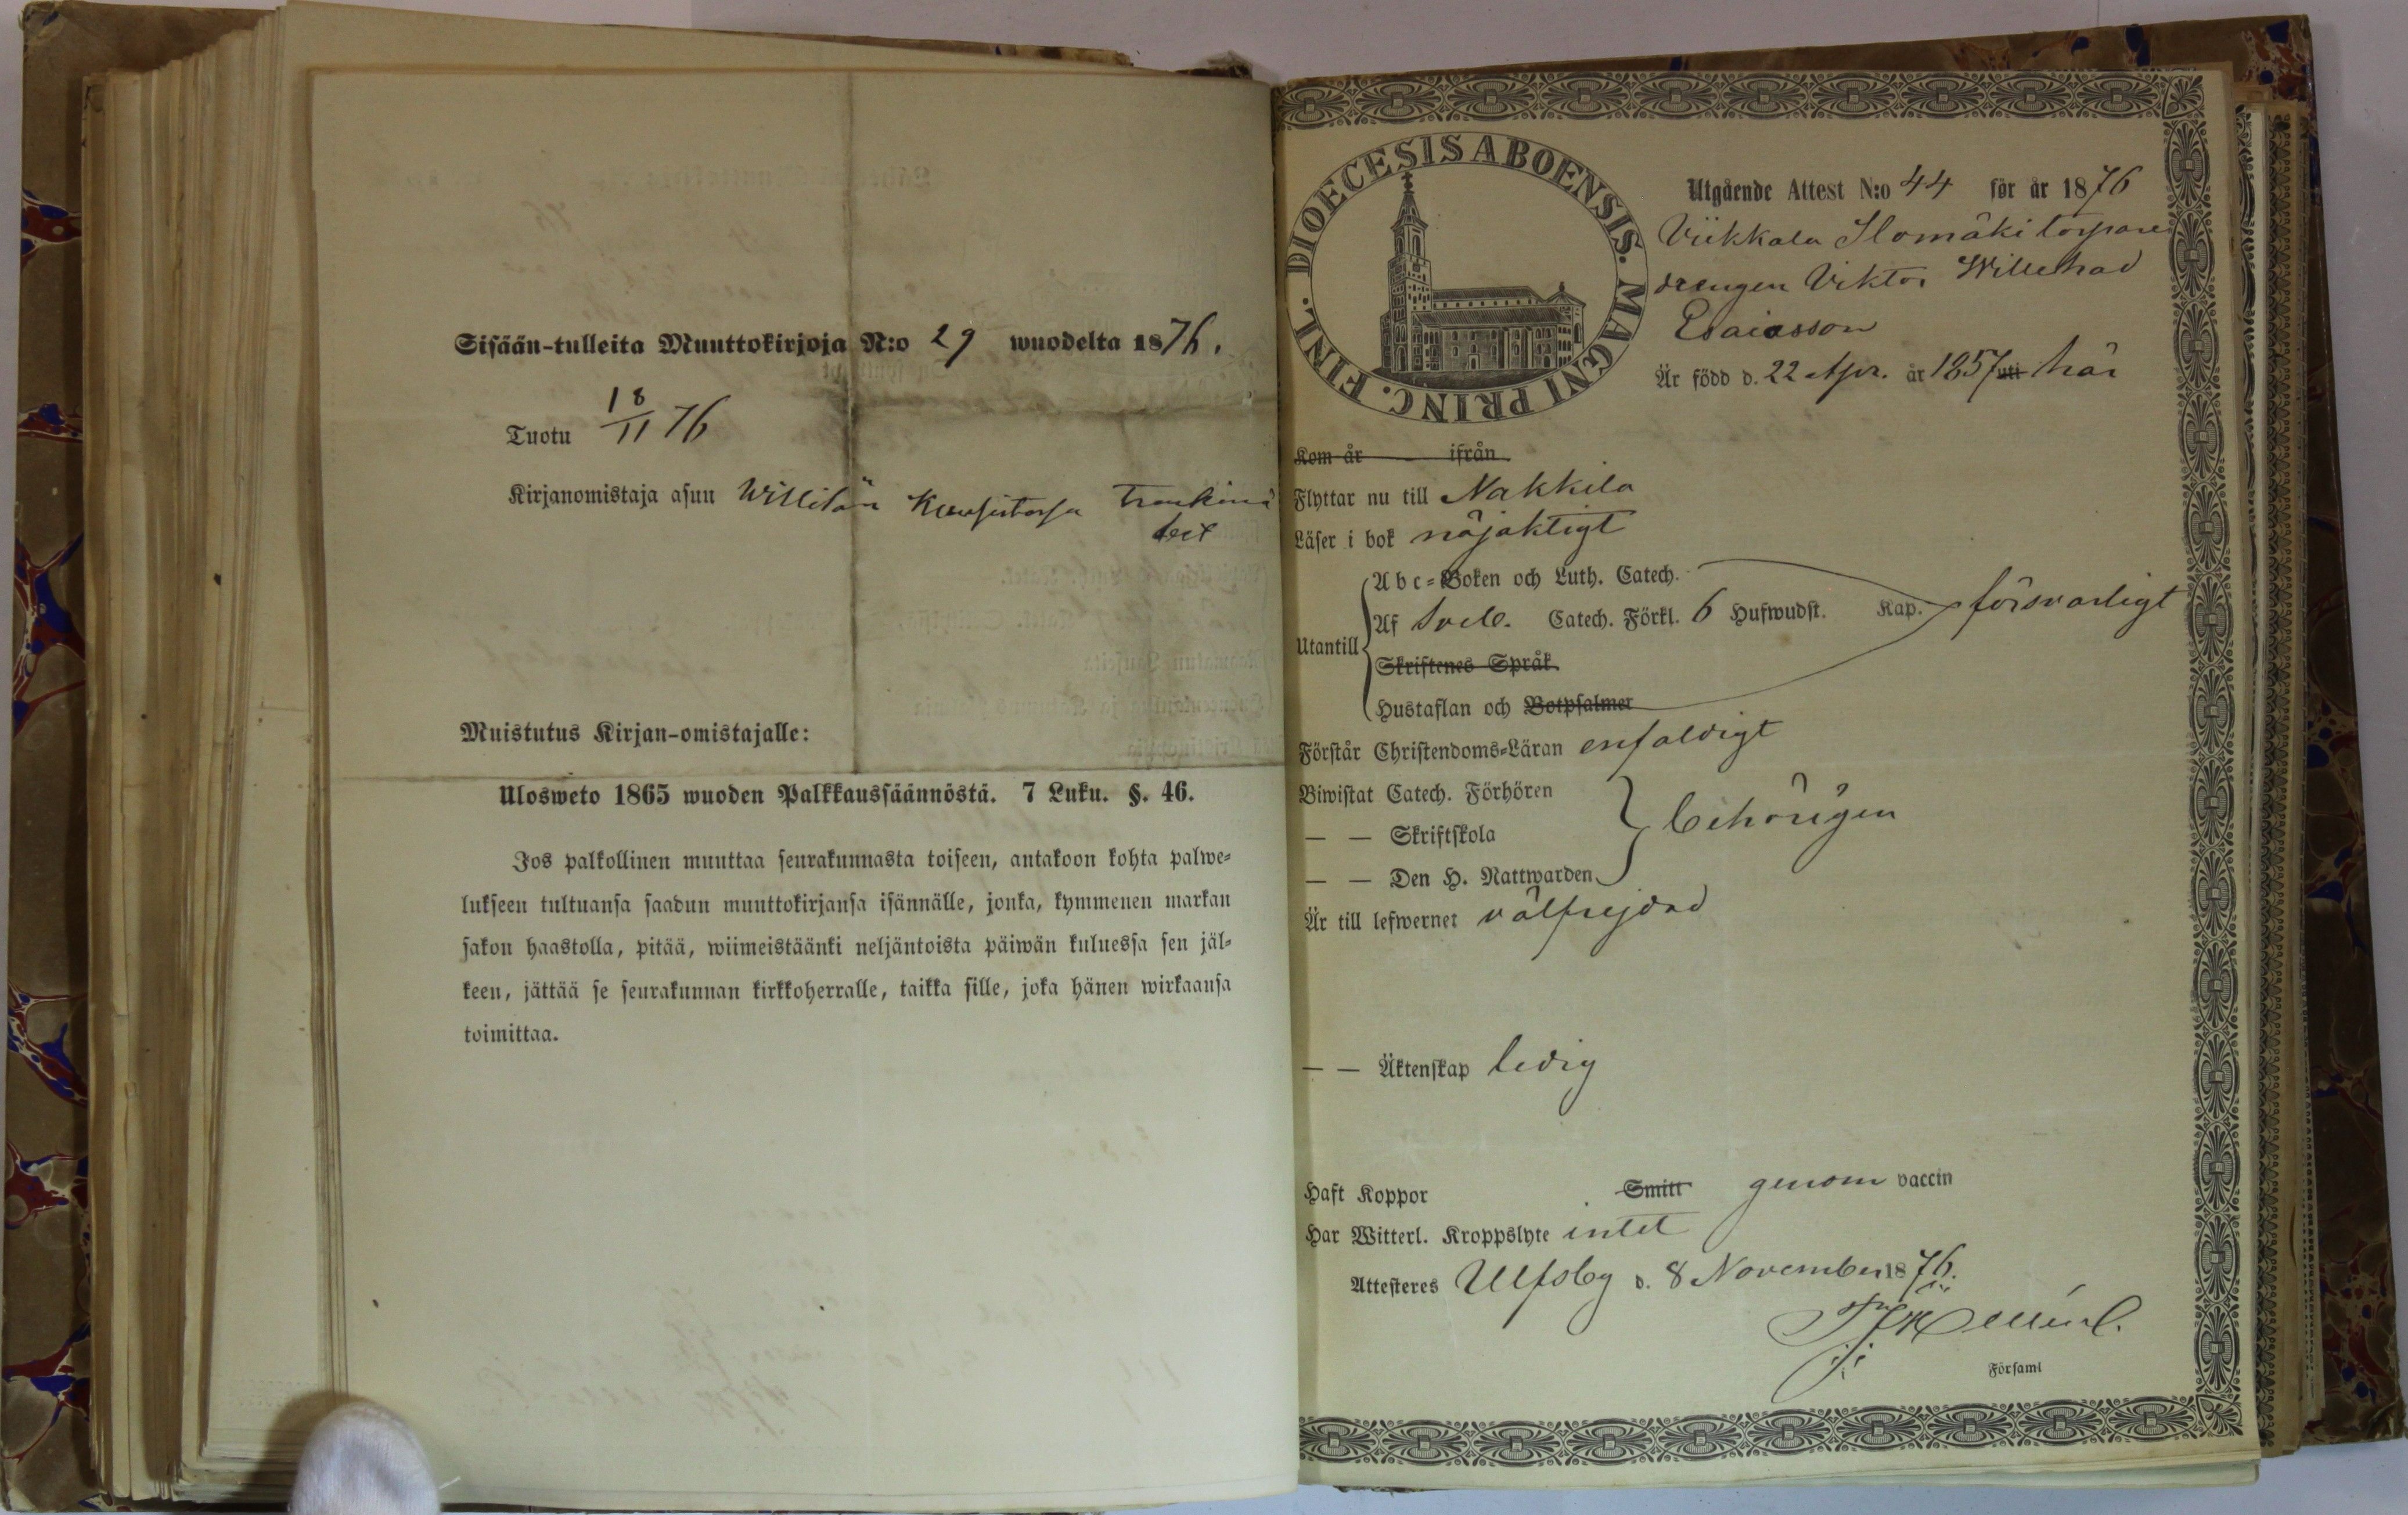 Sisään-tulleita Muuttokirjoja N:o 29 wuodelta 1876.
Tuotu 18/11 76
Kirjanomistaja asuu Willilän
Muistutus Kirjan-omistajalle:
Ulosweto 1865 wuoden Palkkaussäännöstä. 7 Luku. §. 46.
Jos palkollinen muuttaa seurakunnasta toiseen, antakoon kohta palwe-
lukseen tultuansa saadun muuttokirjansa isännälle, jonka, kymmenen markan
sakon haastolla, pitää, wiimeistäänki neljäntoista päiwän kuluessa sen jäl-
keen, jättää se seurakunnan kirkkoherralle, taikka sille, joka hänen wirkaansa
toimittaa.
DIOECESIS ABOENSIS. MAGNI PRINC. FINL.
Utgående Attest N:o 44 för år 1876
Viikkala Ilomäki torpare
drengen Viktor Willehad
Esaiasson
Är född d. 22 Apr. år 1857 uti här
Kom år ifrån
Flyttar nu till Nakkila
Läser i bok nöjaktigt
Utantill
Abc-Boken och Luth. Catech.
Af Sveb. Catech. Förkl. 6 Hufwudst. Kap. försvarligt
Skriftenes Språk
Hustaflan och Botpsalmer
Förstår Christendoms-Läran enfaldigt
Biwistat Catech. Förhören
— — Skriftskola behörigen
— — Den H. Nattwarden
Är till lefwernet välfrejdad
— — Äktenskap ledig
Haft Koppor Smitt genom vaccin
Har Witterl. Kroppslyte intet
Attesteres Ulfsby d. 8 November 1876.
Församl